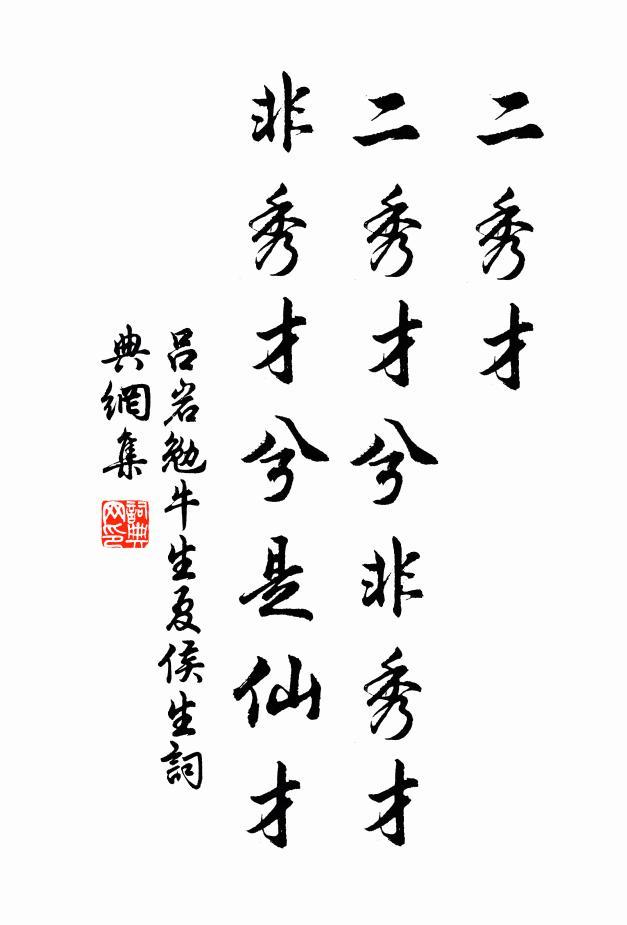 二秀才
二秀才兮非秀才
非秀才兮是仙才
吕岩勉牛生夏侯生詞
典網集
詞典网印